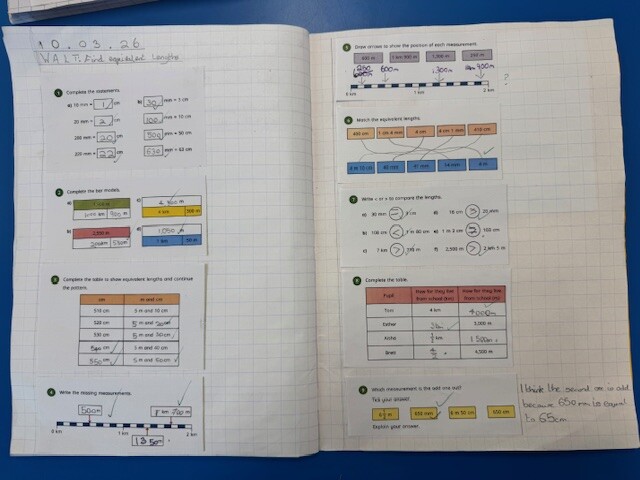 10.03.26
WALT: Find equivalent lengths
1 Complete the statements.
a) 10 mm = 1 cm
b) 30 mm = 3 cm
20 mm = 2 cm
100 mm = 10 cm
200 mm = 20 cm
500 mm = 50 cm
220 mm = 22 cm
630 mm = 63 cm
2 Complete the bar models.
a)
c)
4 km
b)
d)
1 km
50 m
3 Complete the table to show equivalent lengths and continue
the pattern.
cm
m and cm
510 cm
5 m and 10 cm
520 cm
5 m and 20cm
530 cm
5 m and 30cm
540 cm
5 m and 40 cm
550cm
5 m and 50cm
4 Write the missing measurements.
500m
0 km
1 km
2 km
5 Draw arrows to show the position of each measurement.
1,300 m
600m
1,300m
0 km
1 km
2 km
?
6 Match the equivalent lengths.
400 cm
1 cm 4 mm
4 cm
4 cm 1 mm
410 cm
4 m 10 cm
40 mm
41 mm
14 mm
4 m
7 Write < or > to compare the lengths.
a) 30 mm
d) 10 cm > 20 mm
b) 100 cm <
e) 1 m 2 cm
100 cm
c) 7 km >
f) 2,500 m > 2 km 5 m
8 Complete the table.
Pupil
How far they live
from school (km)
How far they live
from school (m)
Tom
4 km
4000m
Esther
5,000 m
Aisha
1500m
Brett
4,500 m
9 Which measurement is the odd one out?
Tick your answer.
650 mm
6 m 50 cm
650 cm
Explain your answer.
I think the second one is odd
because 650 mm is equal
to 65cm